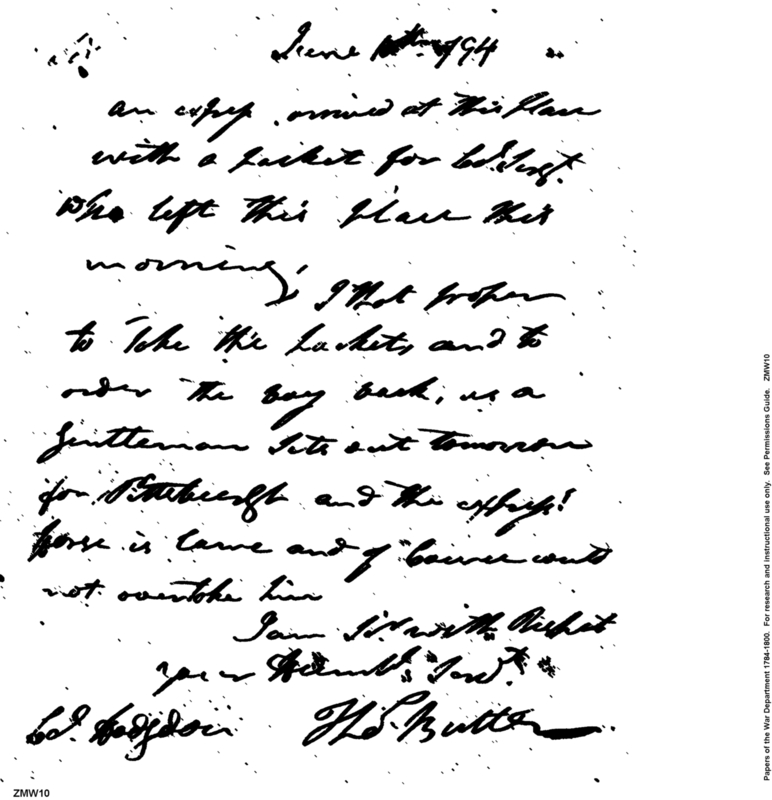 June 10th 1794
an express arrived at this place
with a packet for Col. Sargt.
Who left this place this
morning, I thot proper
to take the packets and to
order the boy back, as a
Gentleman Sets out tomorrow
for Pittsburgh and the express'
horse is lame and of Course could
not overtake him
I am Sir with Respect
your Humbl. Servt.
Col. Hodgdon Thos. Butler
ZMW10
Papers of the War Department 1784-1800. For research and instructional use only. See Permissions Guide. ZMW10